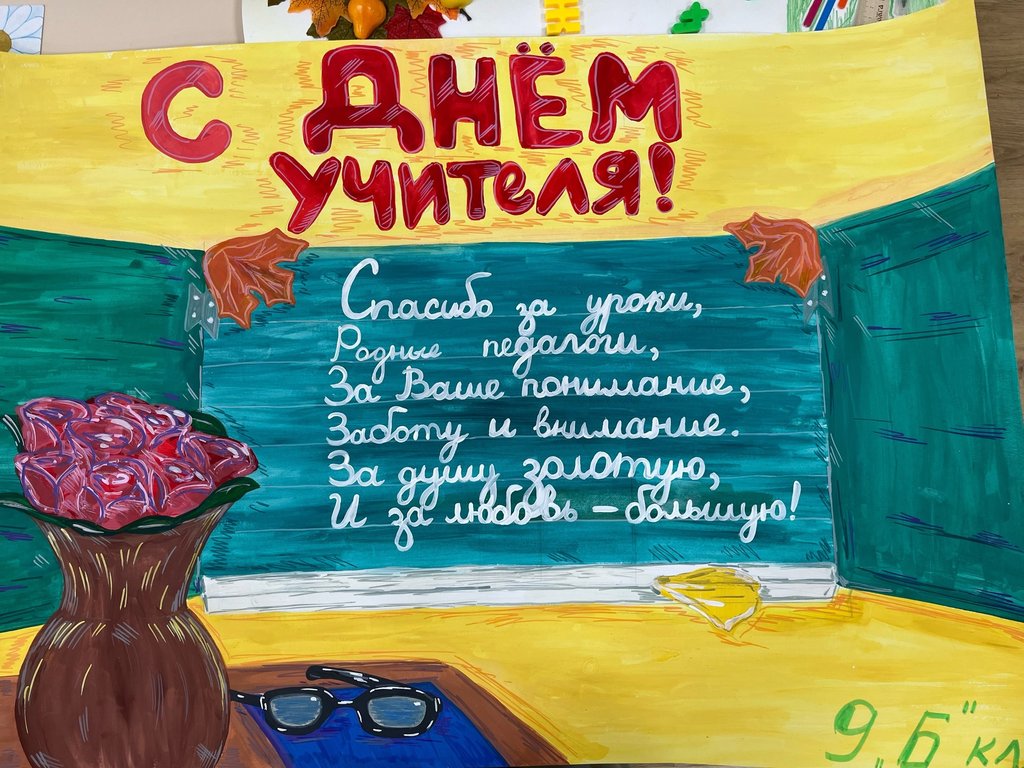 С ДНЁМ
УЧИТЕЛЯ!
Спасибо за уроки,
Родные педагоги,
За Ваше понимание,
Заботу и внимание.
За душу золотую,
И за любовь – большую!
9 „Б" кл